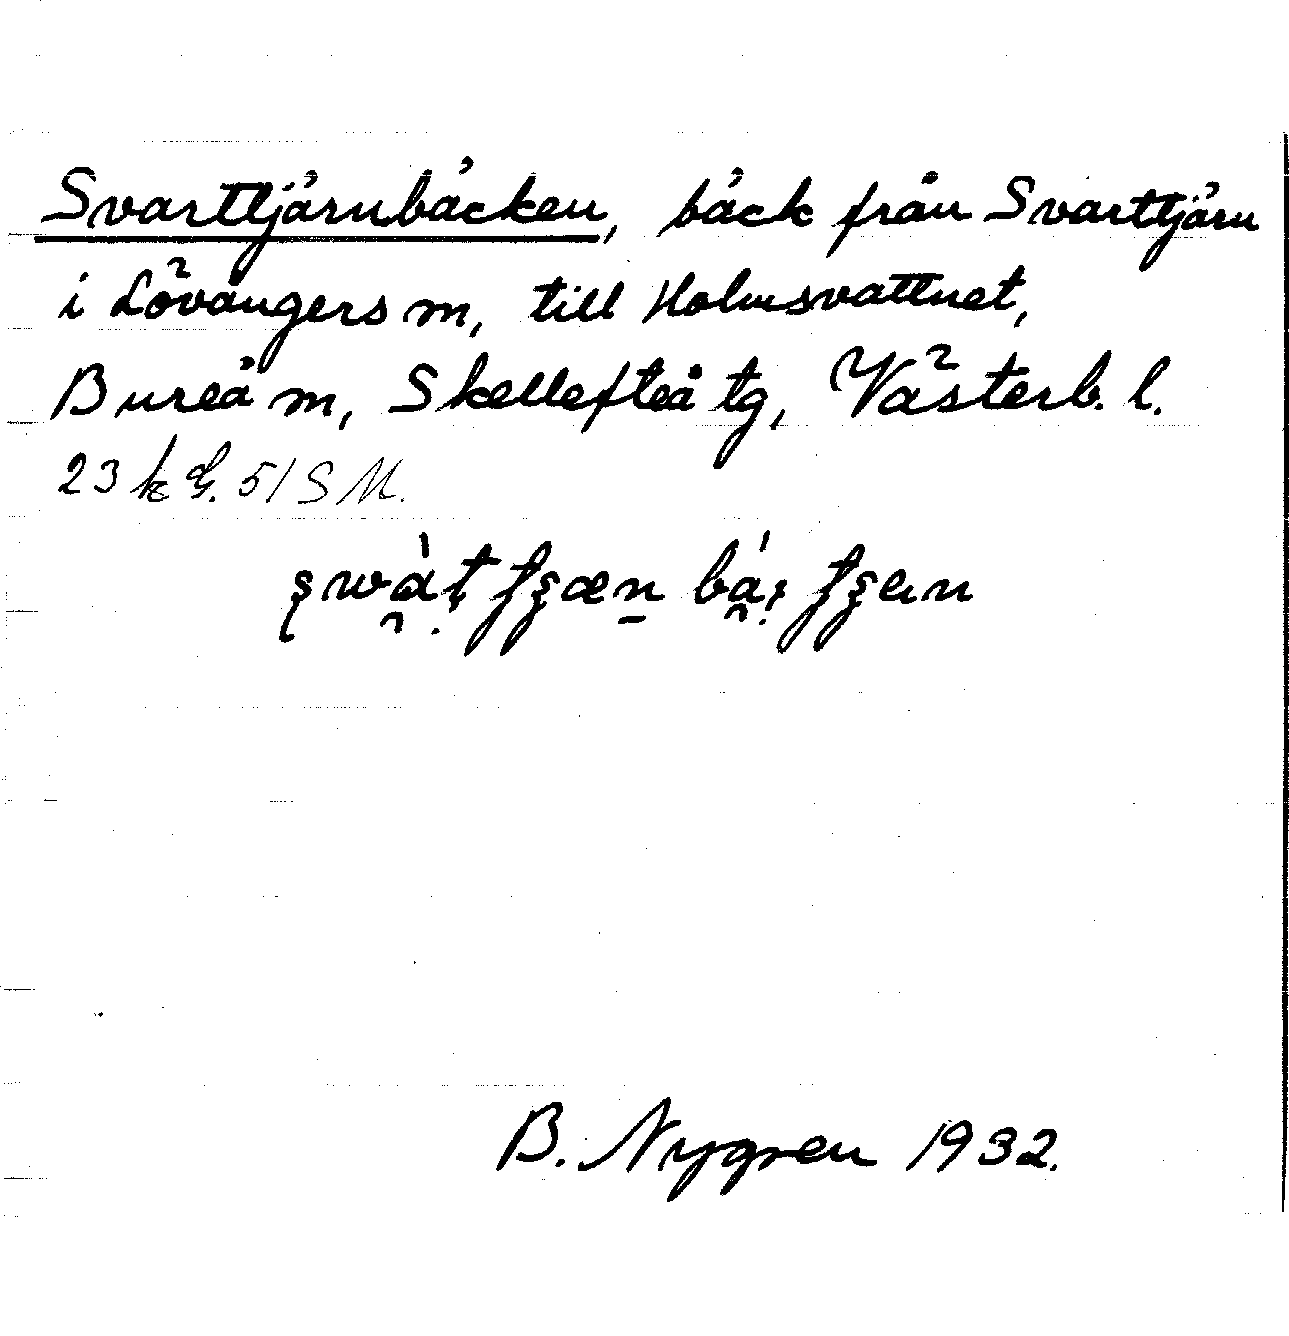 Svarttjärnbäcken, bäck från Svarttjärn
i Lövångers m, till Holmsvattnet,
Bureå m, Skellefteå tg, Västerb. l.
23 k G. 51 SM.
B. Nygren 1932.